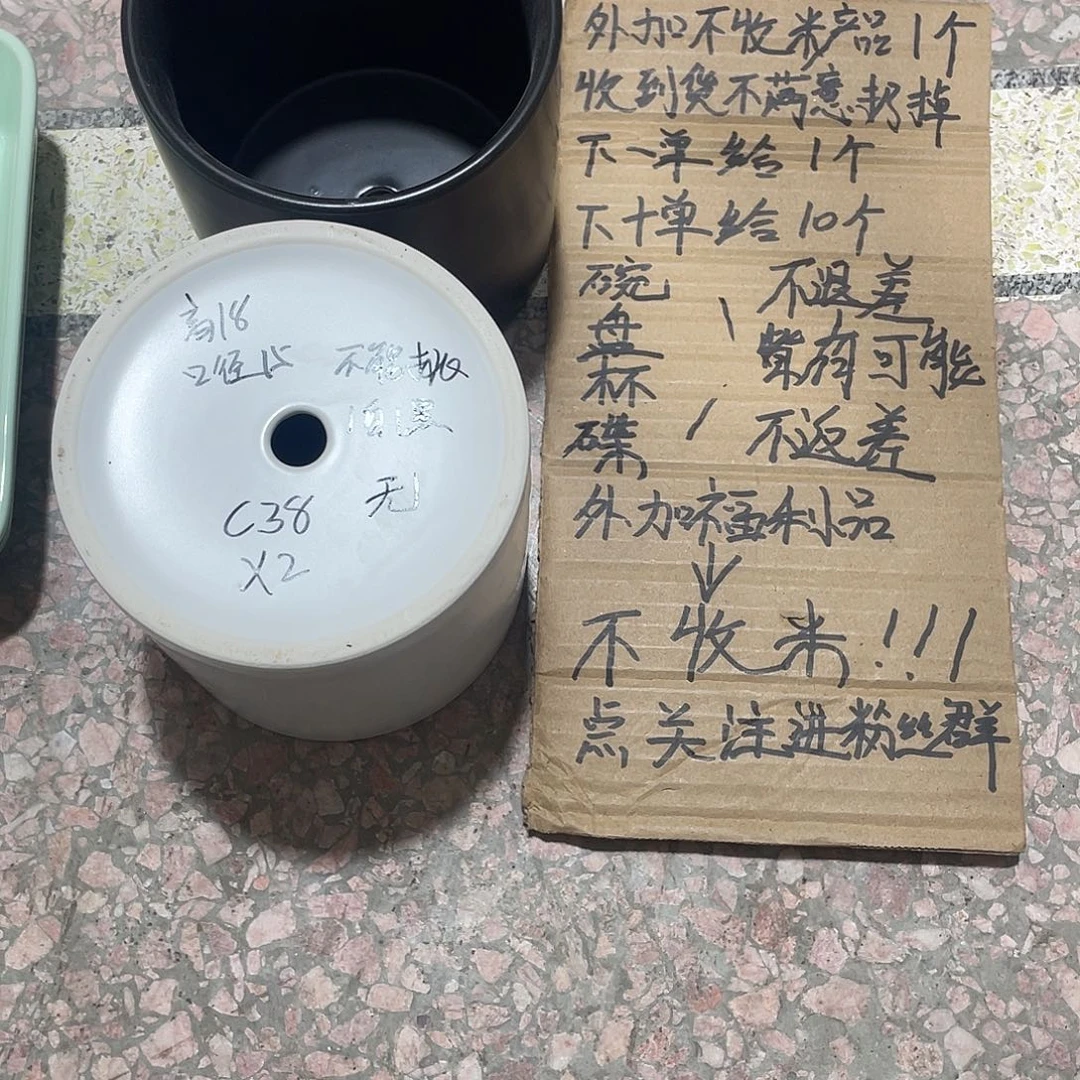 高18
口径15
无
C38
X2
外加不收米产品1个
收到货不满意扔掉
下一单给1个
下十单给10个
碗
盘
杯
碟
不退差
皆有可能
不返差
外加福利品
不收米!!!
点关注进粉丝群